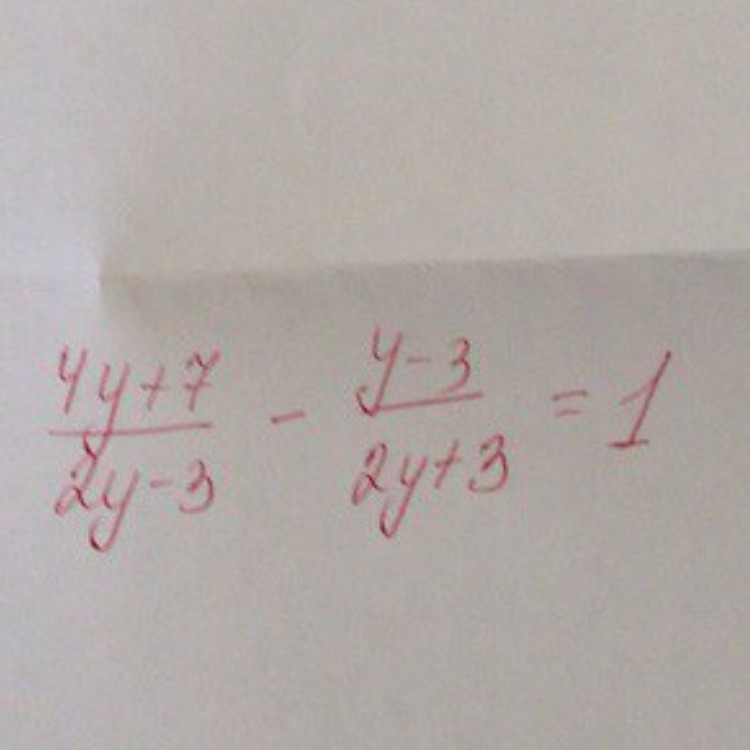 (4y+7)/(2y-3) - (y-3)/(2y+3) = 1